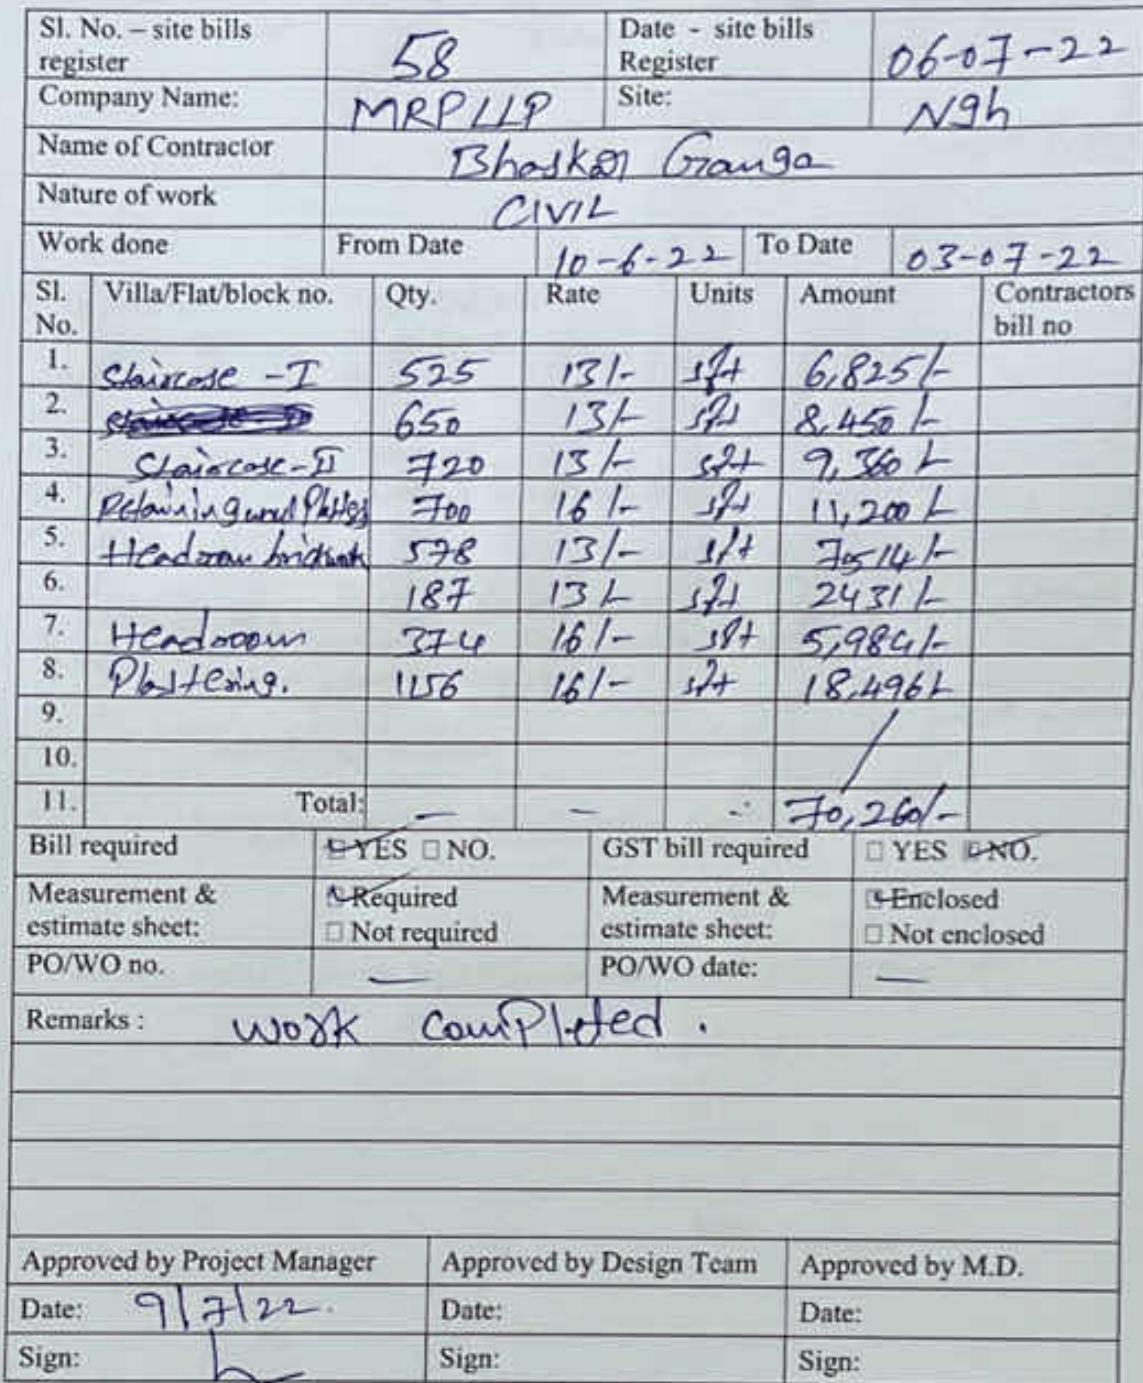 Sl. No. – site bills register 58 Date - site bills Register 06-07-22
Company Name: MRPLLP Site: Ngh
Name of Contractor Bhaskar Ganga
Nature of work CIVIL
Work done From Date 10-6-22 To Date 03-07-22
Sl. No. Villa/Flat/block no. Qty. Rate Units Amount Contractors bill no
1. Staircase - I 525 13/- sft 6,825/-
2. 650 13/- sft 8,450/-
3. Staircase - II 720 13/- sft 9,360/-
4. Retaining 700 16/- sft 11,200/-
5. Headroom brickwork 578 13/- sft 7514/-
6. 187 13/- sft 2431/-
7. Headroom 374 16/- sft 5,984/-
8. Plastering. 1156 16/- sft 18,496/-
9.
10.
11. Total: — — - 70,260/-
Bill required YES NO. GST bill required YES NO.
Measurement & estimate sheet: Required Not required Measurement & estimate sheet: Enclosed Not enclosed
PO/WO no. — PO/WO date: —
Remarks : Work Completed .
Approved by Project Manager Approved by Design Team Approved by M.D.
Date: 9/7/22. Date: Date:
Sign: Sign: Sign: